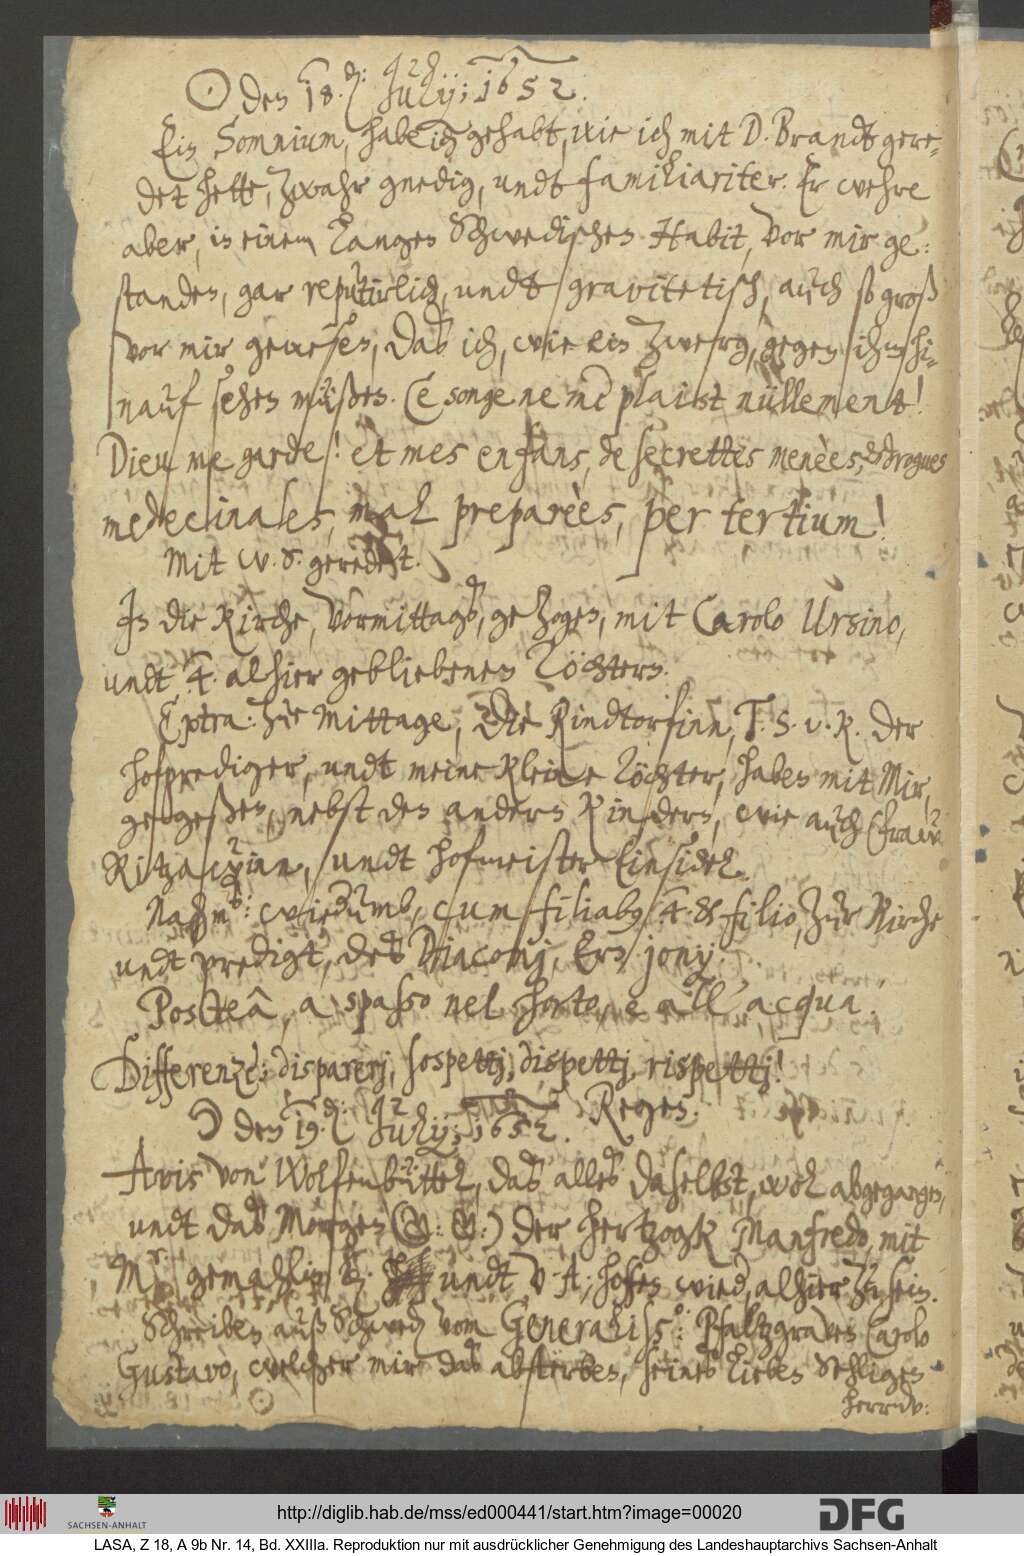 ☉ den 18. Julij; 1652.
Ein Somnium, habe ich gehabt, wie ich mit D. Brandt gere-
det hette, zwahr gnedig, undt familiariter. Er wehre
aber, in einem langen Schwedischen Habit, vor mir ge:
standen, gar reputirlich, undt gravitetisch, auch so groß
vor mir gewesen, das ich, wie ein Zwerg, gegen ihm hi-
nauf sehen müßen. Ce songe ne me plaist nüllement!
Dieu me garde! et mes enfans, de secrettes menèes, & drogues
medecinales, mal preparèes, per tertium!
Mit geredet.
In die Kirche, vormittags, gezogen, mit Carolo Ursino,
undt 4. alhier gebliebenen Töchtern.
Extra: zu Mittage, Die Rindtorfinn, T. S. v. K. der
hofprediger, undt meine kleine Töchter, haben mit Mir,
gegeßen, nebst den andern Kindern, wie auch Fraw
Ritzawinn, undt hofmeister Einsidel.
Nachm: wiedumb, cum filiabus 4. & filio, zur Kirche
undt predigt, des Diaconj, Ern Jonij.
Posteâ, a spasso nel horto, e all' acqua.
Differenze; disparerj, sospettj, dispettj, rispettj!
☽ den 19. Julij; 1652. Reges.
Avis von Wolfenbüttel, das alles daselbst, wol abgegangen,
undt das Morgen der hertzogk Manfredo, mit
gemahlin undt v. A; hofen wied, alhier zu sein.
Schreiben auß Schwed vom Generaliss: Pfaltzgraven Carolo
Gustavo, welcher mir das absterben, seines lieben Sehligen
herrnv:
http://diglib.hab.de/mss/ed000441/start.htm?image=00020
SACHSEN-ANHALT
DFG
LASA, Z 18, A 9b Nr. 14, Bd. XXIIIa. Reproduktion nur mit ausdrücklicher Genehmigung des Landeshauptarchivs Sachsen-Anhalt